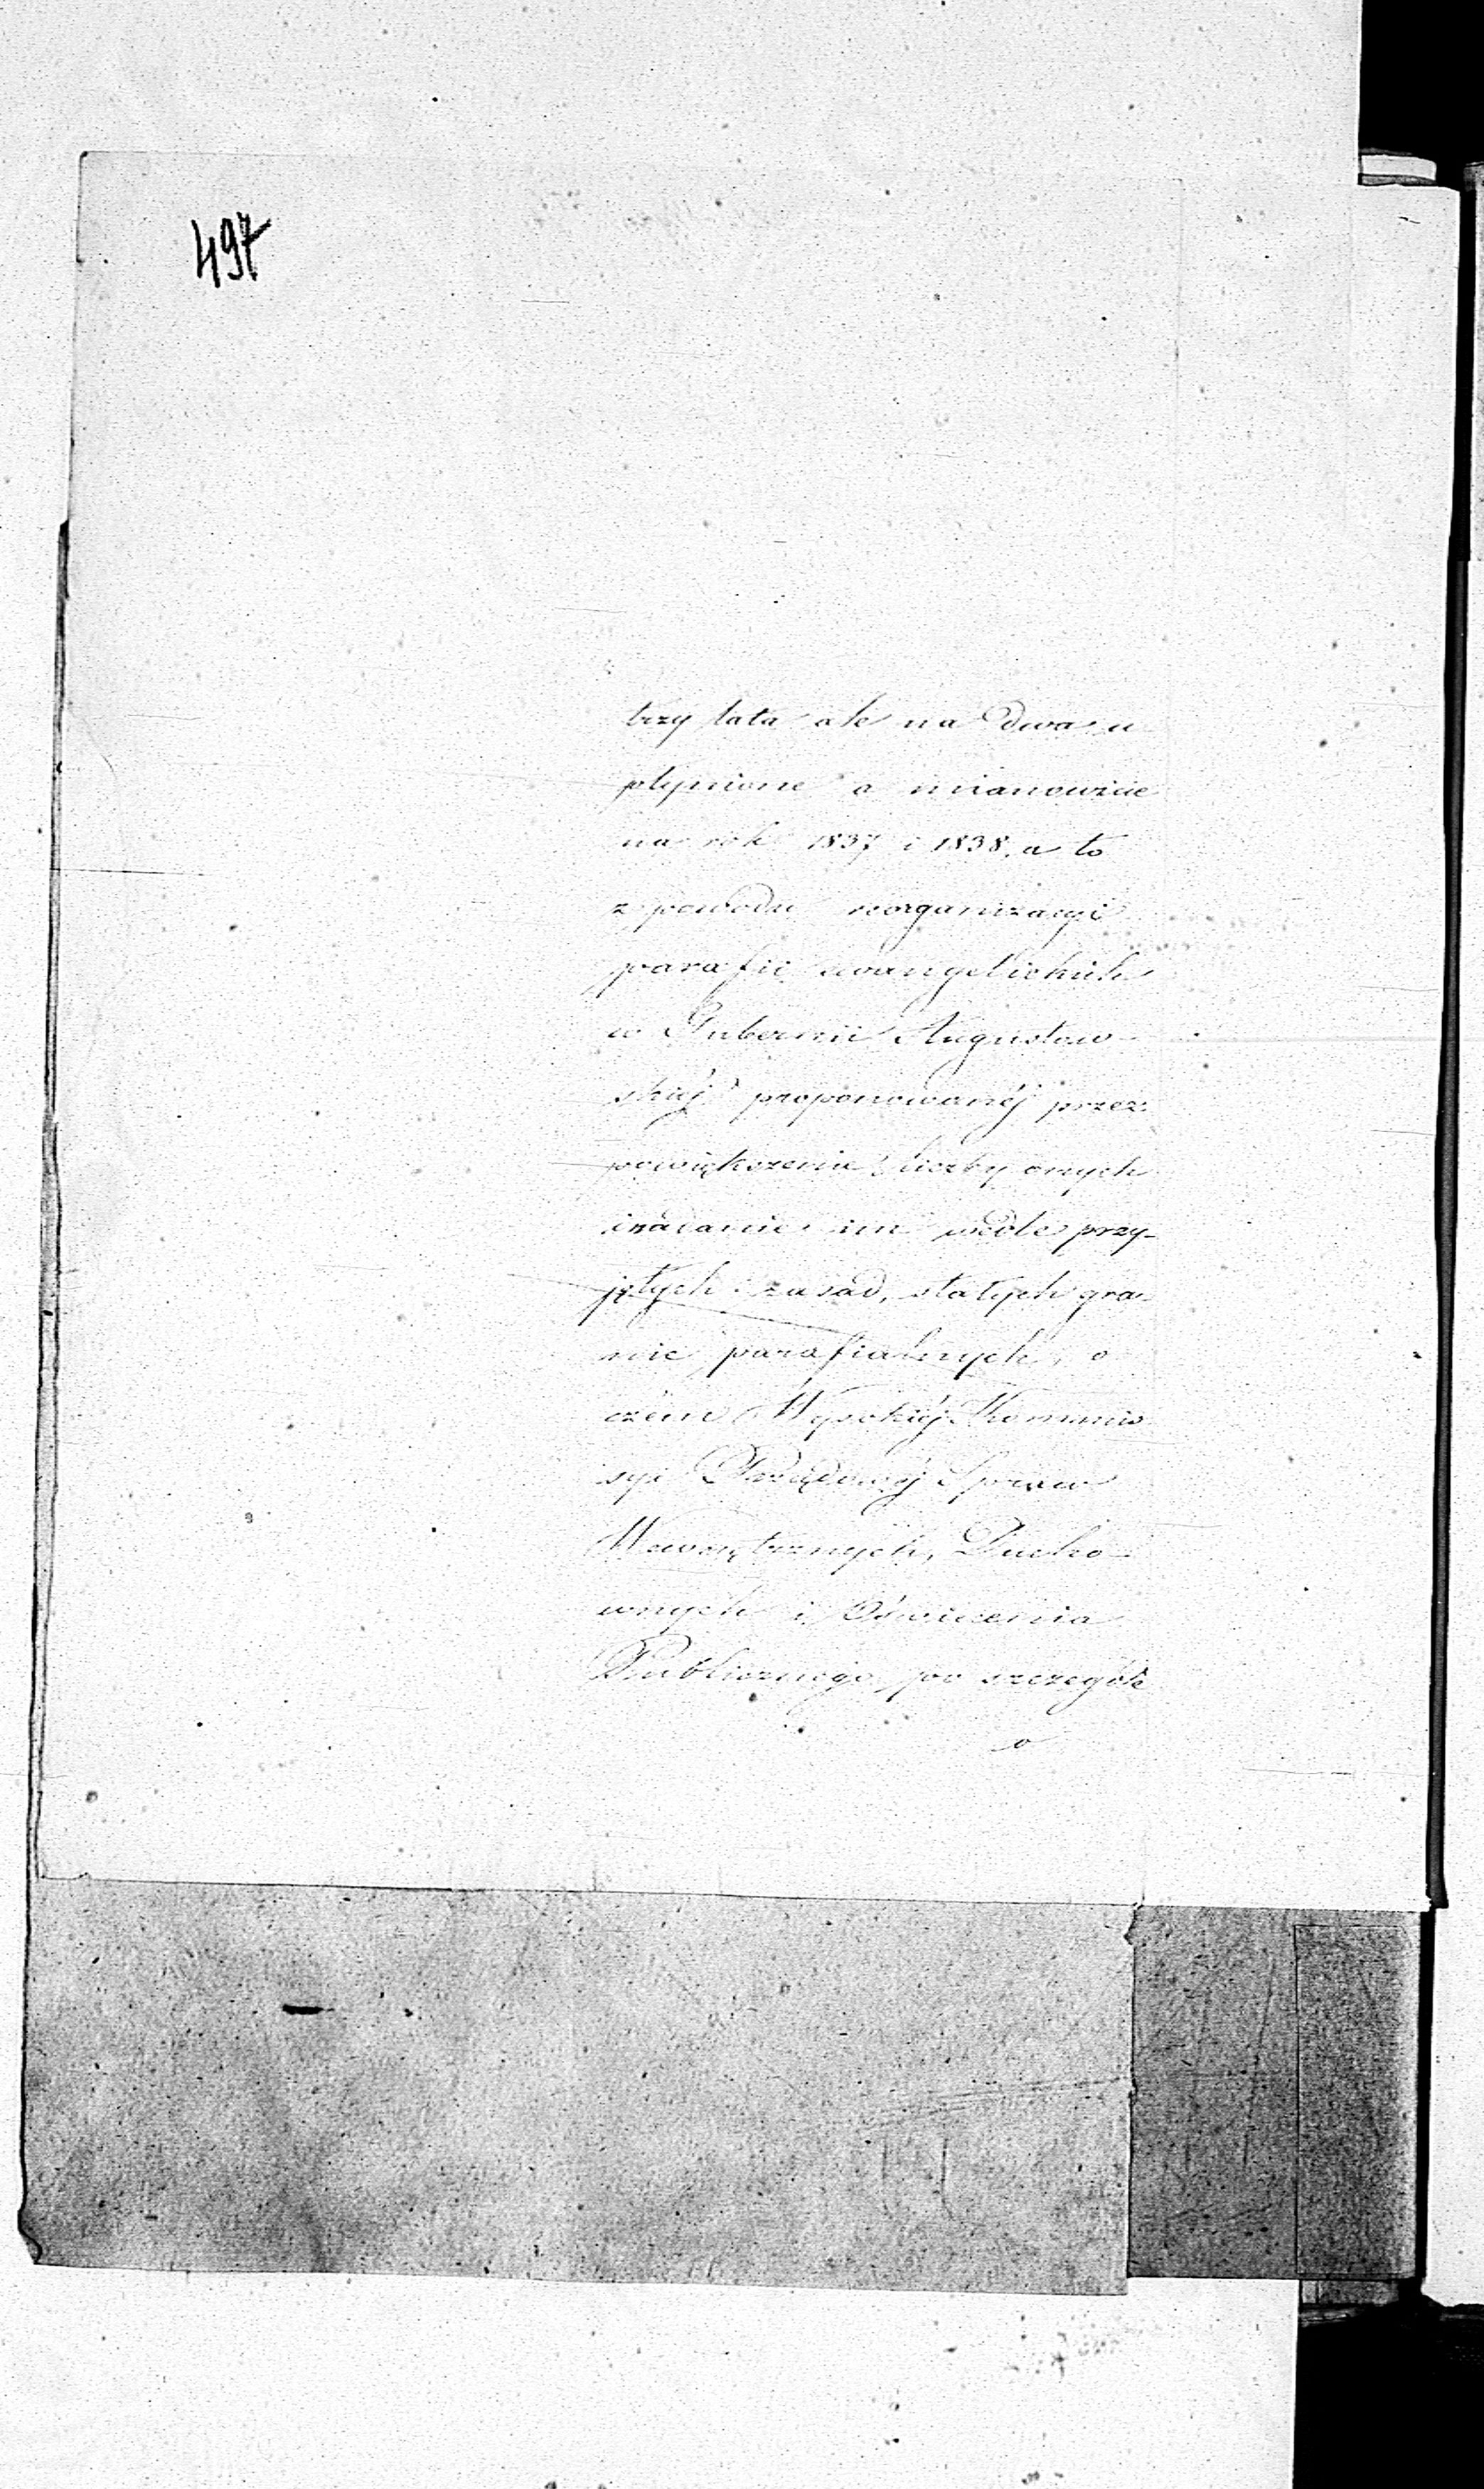 497
trzy lata ale na dwa u
płynione a mianowicie
na rok 1837 i 1838, a to
z powodu reorganizacyi
parafii ewangelickich
w Gubernii Augustow-
skiéj proponowanéj przez
powiększenie liczby onych
i nadanie im wedle przy-
jętych zasad, stałych gra-
nic parafialnych, o
czém Wysokiéj Kommis
syi Rządowéj Spraw
Wewnętrznych, Ducho-
wnych i Oświecenia
Publicznego, po szczególe
o